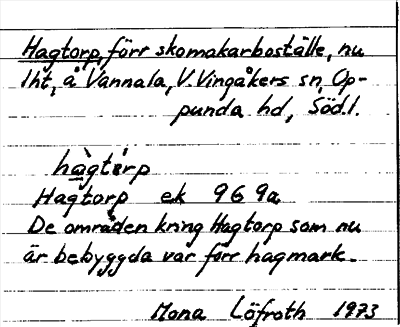 Hagtorp, förr skomakarboställe, nu
lht, å Vannala, V. Vingåkers sn, Op-
punda hd, Söd.l.
hàgtårp
Hagtorp ek 969a
De områden kring Hagtorp som nu
är bebyggda var förr hagmark.
Mona Löfroth 1973